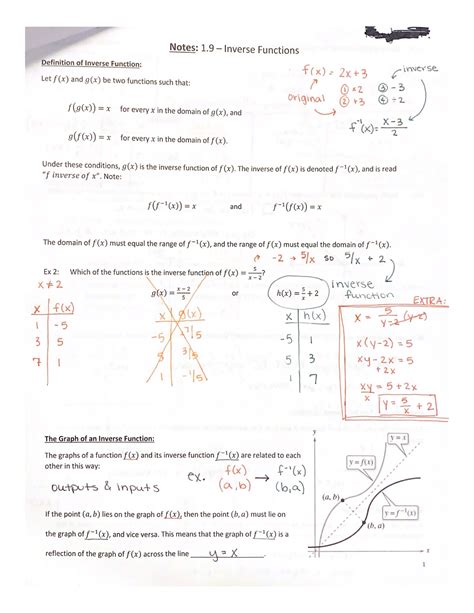 Notes: 1.9 – Inverse Functions
Definition of Inverse Function:
Let f(x) and g(x) be two functions such that:
f(g(x)) = x for every x in the domain of g(x), and
g(f(x)) = x for every x in the domain of f(x).
f(x) = 2x+3
inverse
original
① ×2 ③ -3
② +3 ④ ÷2
f⁻¹(x) = (x-3)/2
Under these conditions, g(x) is the inverse function of f(x). The inverse of f(x) is denoted f⁻¹(x), and is read
"f inverse of x". Note:
f(f⁻¹(x)) = x and f⁻¹(f(x)) = x
The domain of f(x) must equal the range of f⁻¹(x), and the range of f(x) must equal the domain of f⁻¹(x).
→ -2 → 5/x so 5/x + 2
Ex 2: Which of the functions is the inverse function of f(x) = 5/(x-2)?
x ≠ 2
g(x) = (x-2)/5 or h(x) = 5/x + 2
inverse function
x f(x)
1 -5
3 5
7 1
x g(x)
-5 -7/5
5 3/5
1 -1/5
x h(x)
-5 1
5 3
1 7
EXTRA:
x = 5/(y-2) (y-2)
x(y-2) = 5
xy - 2x = 5
+2x
xy = 5 + 2x
x
y = 5/x + 2
The Graph of an Inverse Function:
The graphs of a function f(x) and its inverse function f⁻¹(x) are related to each
other in this way:
outputs & inputs
ex. f(x) → f⁻¹(x)
(a,b) (b,a)
If the point (a, b) lies on the graph of f(x), then the point (b, a) must lie on
the graph of f⁻¹(x), and vice versa. This means that the graph of f⁻¹(x) is a
reflection of the graph of f(x) across the line y = x .
y
y = x
y = f(x)
(a, b)
y = f⁻¹(x)
(b, a)
x
1